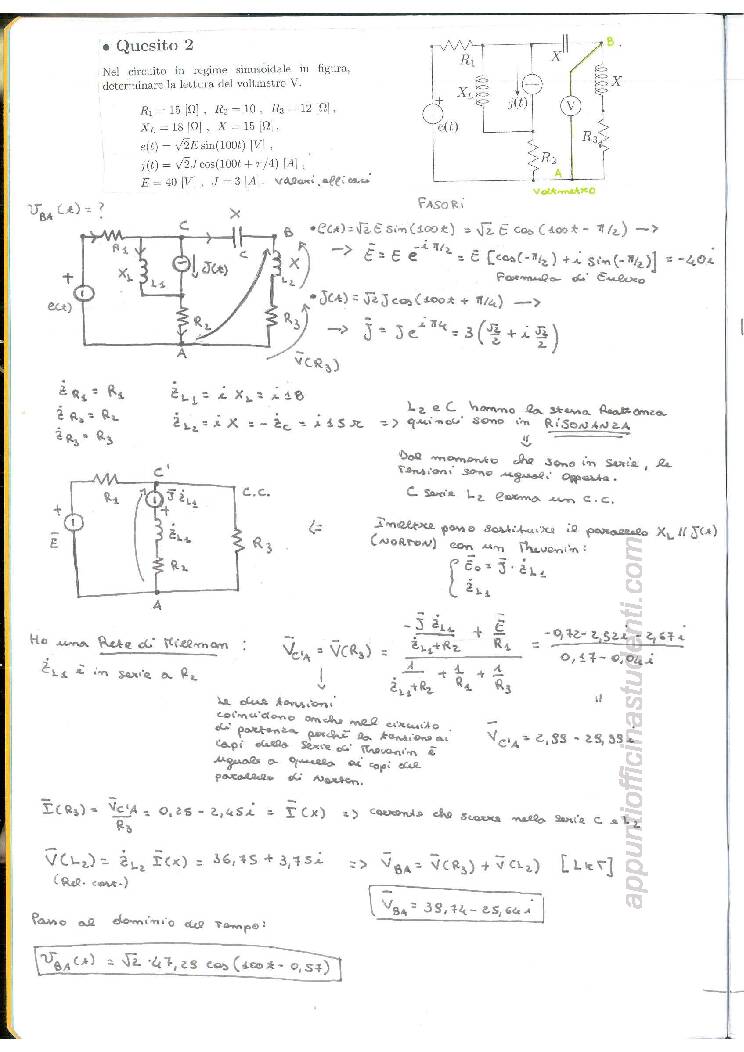 • Quesito 2
Nel circuito in regime sinusoidale in figura,
determinare la lettura del voltmetro V.
R₁ = 15 [Ω] , R₂ = 10 , R₃ = 12 [Ω] ,
X_L = 18 [Ω] , X = 15 [Ω] ,
e(t) = √2E sin(100t) [V] ,
j(t) = √2J cos(100t + π/4) [A] ,
E = 40 [V] , J = 3 [A] valori efficaci
R₁ X B
X_L j(t) V X
e(t) R₃
R₂ A
Voltmetro
V_BA(t) = ?
FASORI
C X
R₁ C B
X_L L1 J(t) X L2
e(t) R₂ R₃
A V̄(R₃)
• e(t) = √2 E sin(100t) = √2 E cos(100t - π/2) →
→ Ē = E e^(-iπ/2) = E [cos(-π/2) + i sin(-π/2)] = -40i
Formula di Eulero
• J(t) = √2 J cos(100t + π/4) →
→ J̄ = J e^(iπ/4) = 3 (√2/2 + i √2/2)
ż_R1 = R₁ ż_L1 = i X_L = i18
ż_R2 = R₂ ż_L2 = i X = - ż_C = i15 Ω ⇒
ż_R3 = R₃
L2 e C hanno la stessa Reattanza
quindi sono in RISONANZA
⇓
Dal momento che sono in serie, le
tensioni sono uguali opposte.
C serie L2 forma un C.C.
C' C.C.
R₁ J̄ ż_L1
Ē ż_L1 R₃
R₂
A
⇐ Inoltre posso sostituire il parallelo X_L // J(t)
(NORTON) con un Thevenin:
{ Ē₀ = J̄ · ż_L1
ż_L1
Ho una Rete di Millman :
ż_L1 è in serie a R₂
V̄_C'A = V̄(R₃) = (-J̄ ż_L1/(ż_L1+R₂) + Ē/R₁) / (1/(ż_L1+R₂) + 1/R₁ + 1/R₃) = (-0,72-2,52i-2,67i) / (0,17-0,04i)
Le due tensioni
coincidono anche nel circuito
di partenza perchè la tensione ai
capi della serie di Thevenin è
uguale a quella ai capi del
parallelo di Norton.
V̄_C'A = 2,99 - 29,39i
Ī(R₃) = V̄_C'A/R₃ = 0,25 - 2,45i = Ī(X) ⇒ corrente che scorre nella serie C e L2
V̄(L2) = ż_L2 Ī(X) = 36,75 + 3,75i ⇒ V̄_BA = V̄(R₃) + V̄(L2) [LKT]
(Rel. cost.)
V̄_BA = 39,74 - 25,64i
Passo al dominio del tempo:
V_BA(t) = √2 · 47,29 cos(100t - 0,57)
appuntiofficinastudenti.com